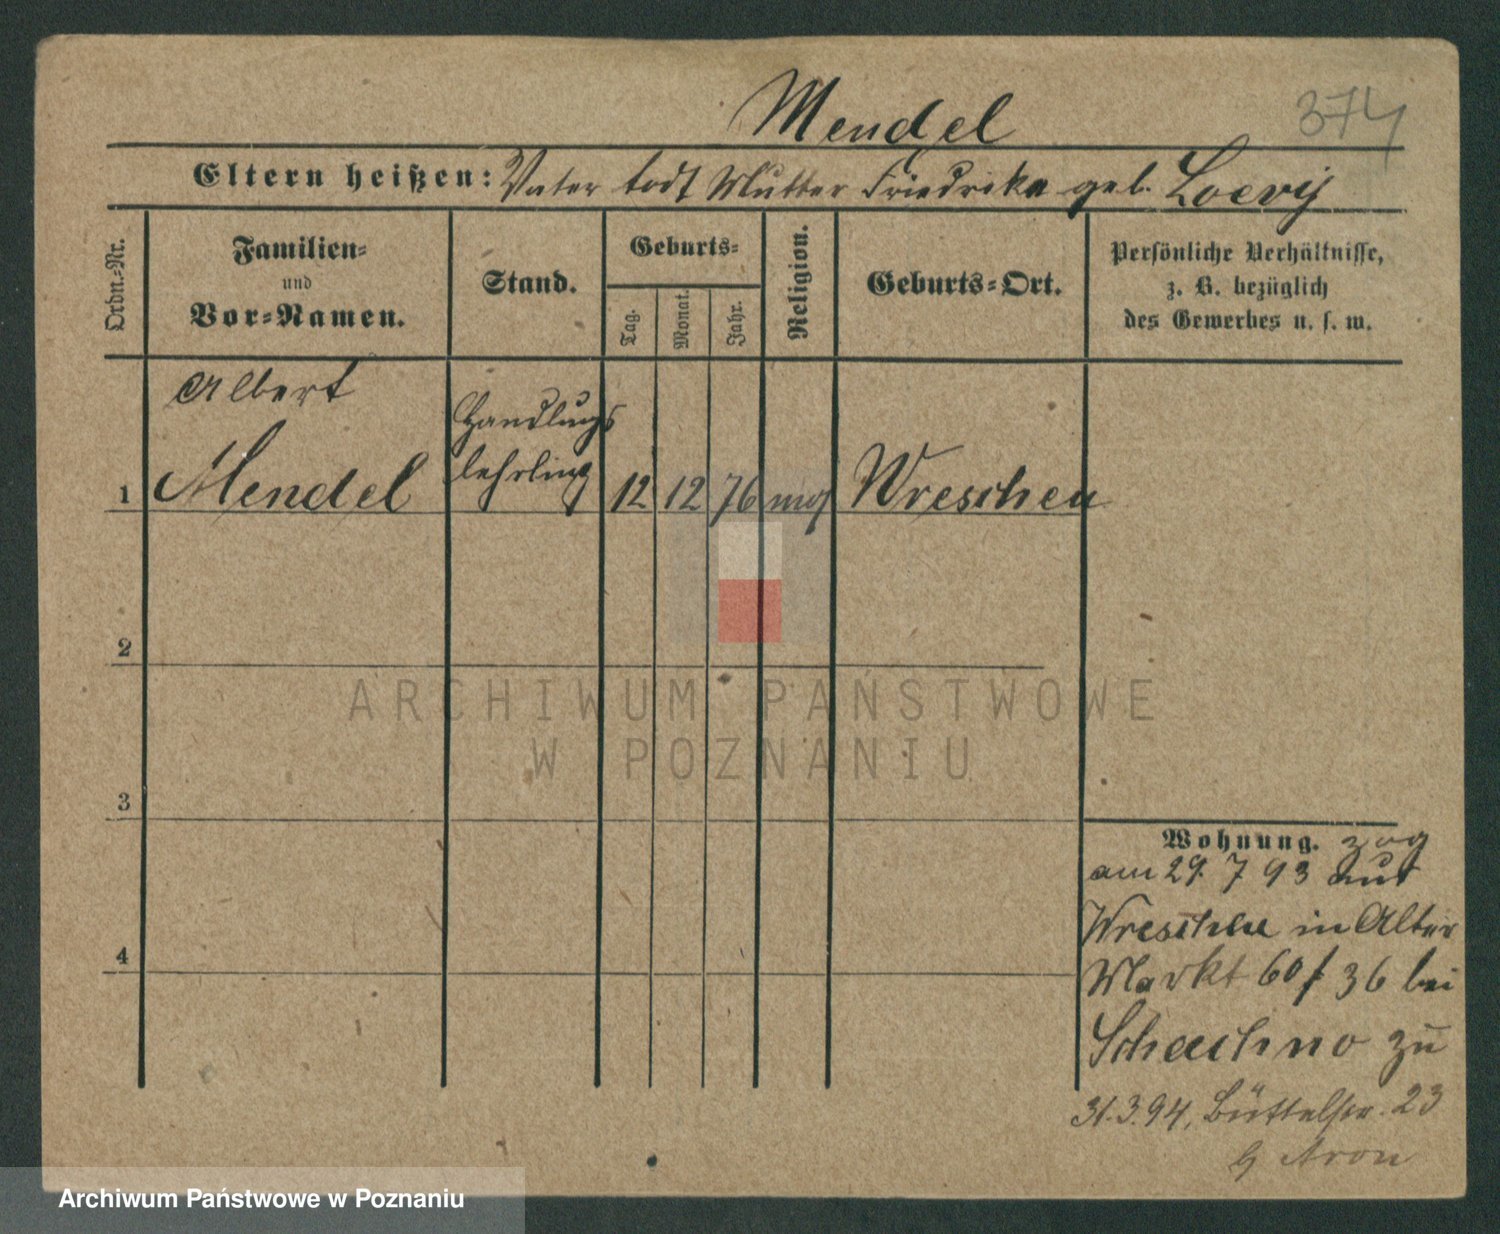 Mendel 374
Eltern heißen: Vater todt Mutter Friedrike geb. Loevy
Ordn.-Nr.
Familien-
und
Vor-Namen.
Stand.
Geburts-
Tag.
Monat.
Jahr.
Religion.
Geburts-Ort.
Persönliche Verhältnisse,
z. B. bezüglich
des Gewerbes u. s. w.
Albert
Handlugs
lehrling
1 Mendel 12 12 76 mos Wreschen
2
3
4
ARCHIWUM PAŃSTWOWE
W POZNANIU
Wohnung. zog
am 29. 7 93 aus
Wreschen in Alter
Markt 60 f 36 bei
Schachno zu
31.3.94, Büttelstr. 23
b Aron
Archiwum Państwowe w Poznaniu